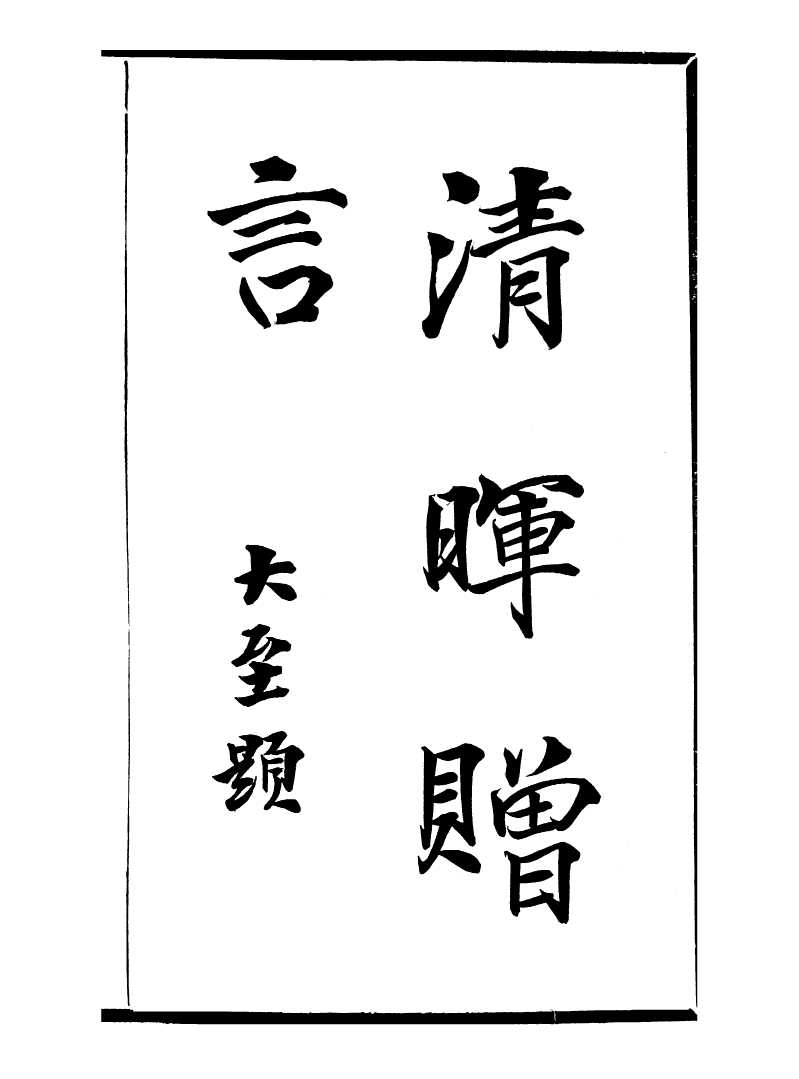 清暉贈
言
大至題